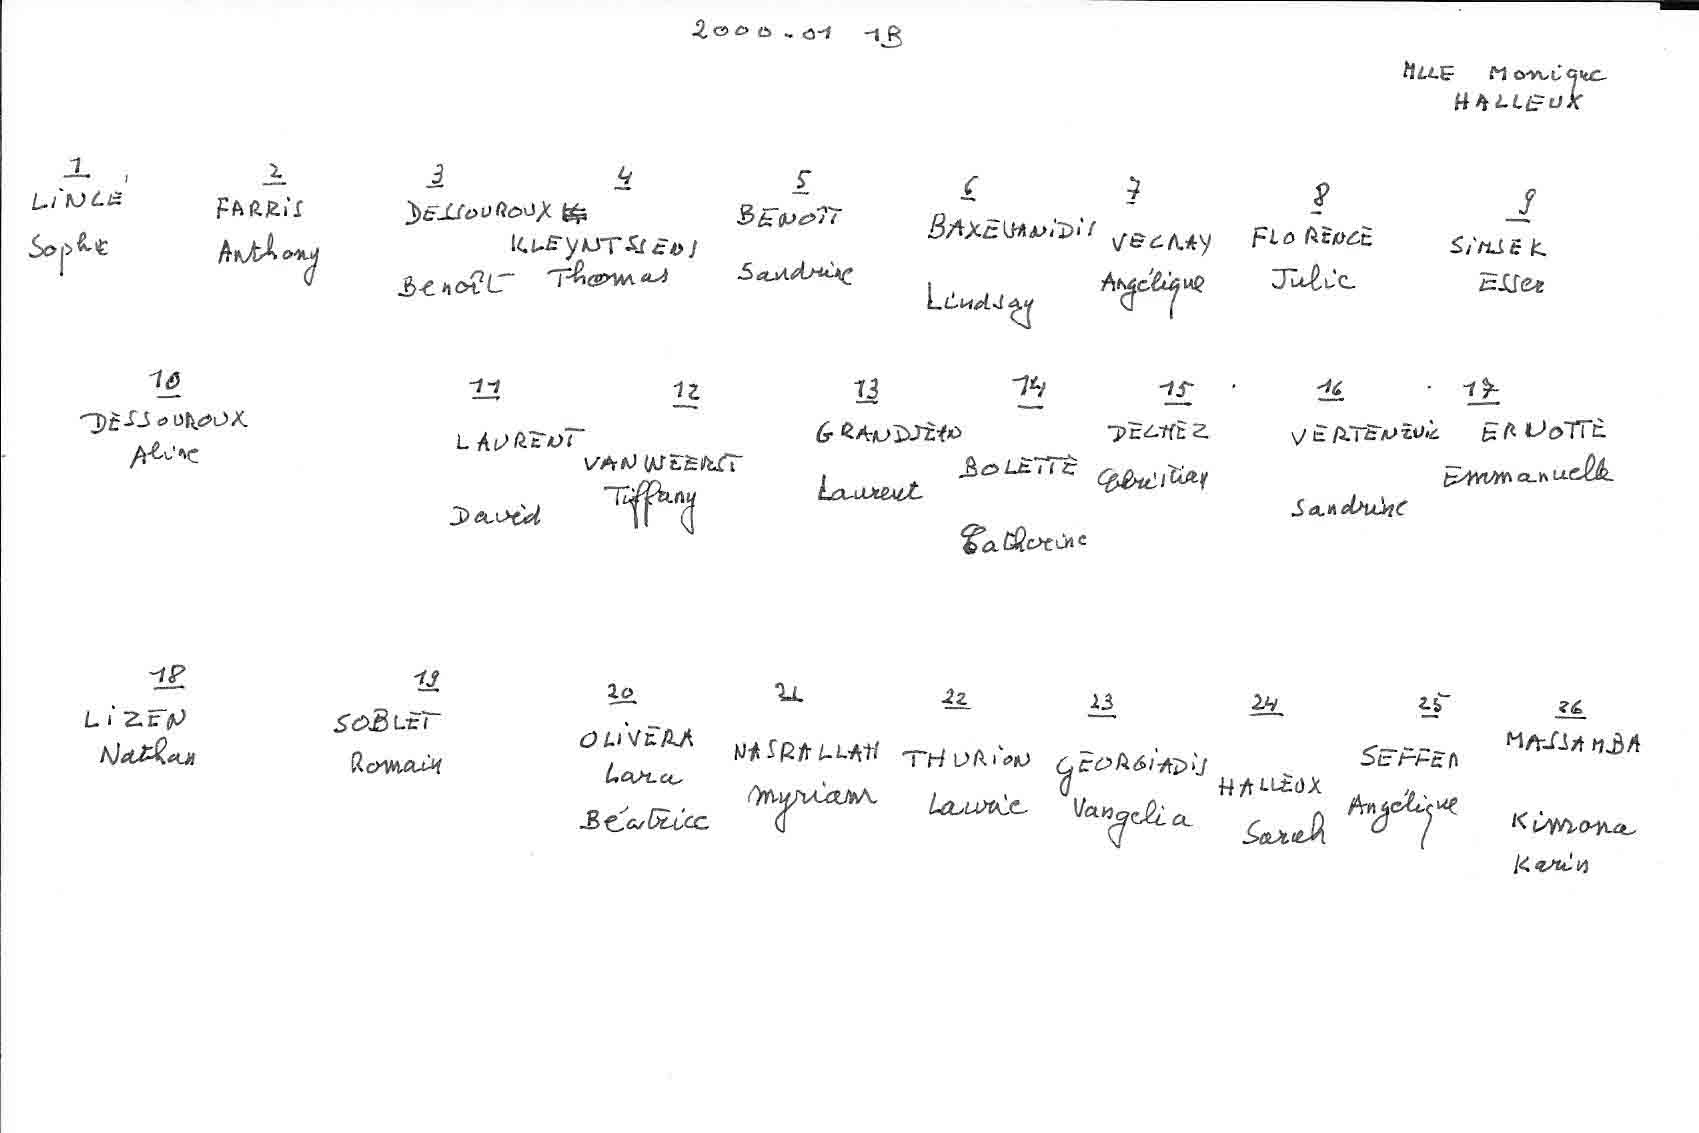 2000-01 1B
MLLE Monique
HALLEUX
1 2 3 4 5 6 7 8 9
LINCÉ FARRIS DESSOUROUX BENOÎT BAXEVANIDIS VECRAY FLORENCE SIMSEK
KLEYNTSSENS
Sophie Anthony Benoît Thomas Sandrine Lindsay Angélique Julie Esser
10 11 12 13 14 15 16 17
DESSOUROUX LAURENT VANWEERST GRANDJEAN BOLETTE DELHEZ VERTENEUIL ERNOTTE
Aline David Tiffany Laurent Catherine Christian Sandrine Emmanuelle
18 19 20 21 22 23 24 25 26
LIZEN SOBLET OLIVERA NASRALLAH THURION GEORGIADIS HALLEUX SEFFER MASSAMBA
Nathan Romain Lara Myriam Laurie Vangelia Sarah Angélique Kimona
Béatrice Karin